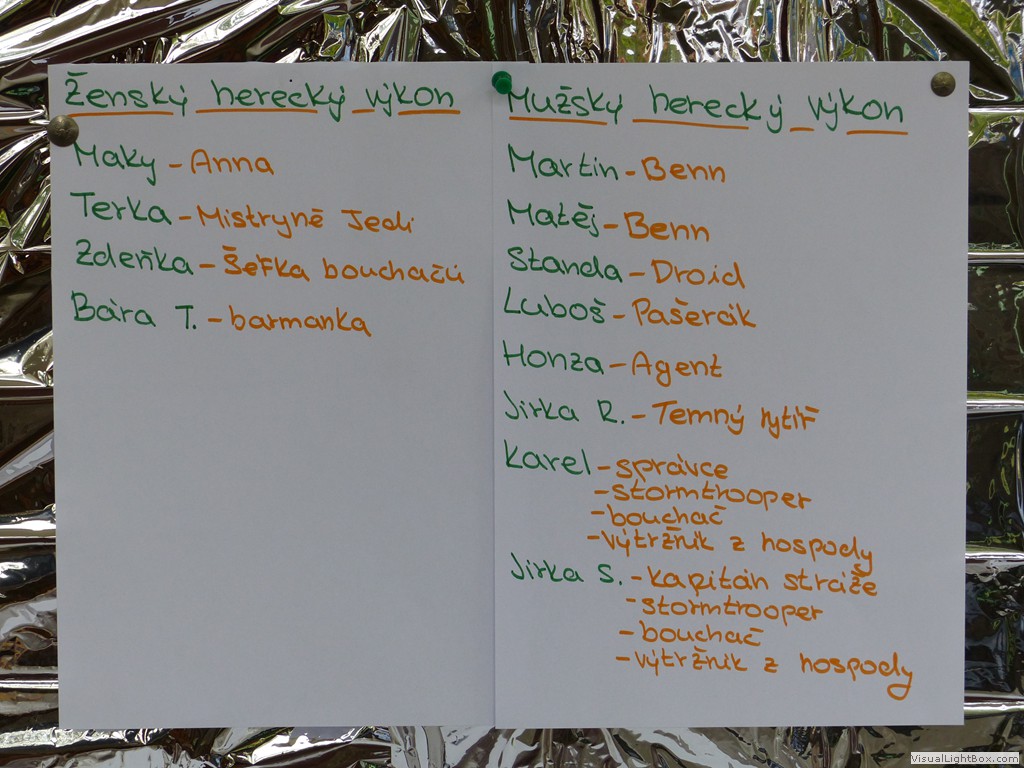 Ženský herecký výkon
Maky - Anna
Terka - Mistryně Jedi
Zdeňka - Šéfka bouchačů
Bára T. - barmanka
Mužský herecký výkon
Martin - Benn
Matěj - Benn
Standa - Droid
Luboš - Pašerák
Honza - Agent
Jirka R. - Temný rytíř
Karel - správce
- stormtrooper
- bouchač
- výtržník z hospody
Jirka S. - kapitán stráže
- stormtrooper
- bouchač
- výtržník z hospody
VisualLightBox.com